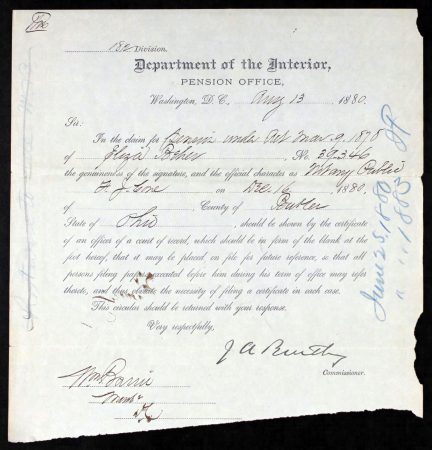 Division.
Department of the Interior,
PENSION OFFICE,
Washington, D.C., Aug 13, 1880.
Sir:
In the claim for Pension under Act Mar. 9, 1878
of Eliza No. 39.346
the genuineness of the signature, and the official character as Notary Public
F. J. Cone on Dec. 16, 1880,
of County of Butler
State of Ohio, should be shown by the certificate
of an officer of a court of record, which should be in form of the blank at the
foot hereof, that it may be placed on file for future reference, so that all
persons filing papers executed before him during his term of office may refer
thereto, and thus obviate the necessity of filing a certificate in each case.
This circular should be returned with your response.
Very respectfully,
J A Bentley
Commissioner.
Wm
June 25, 1880
1883